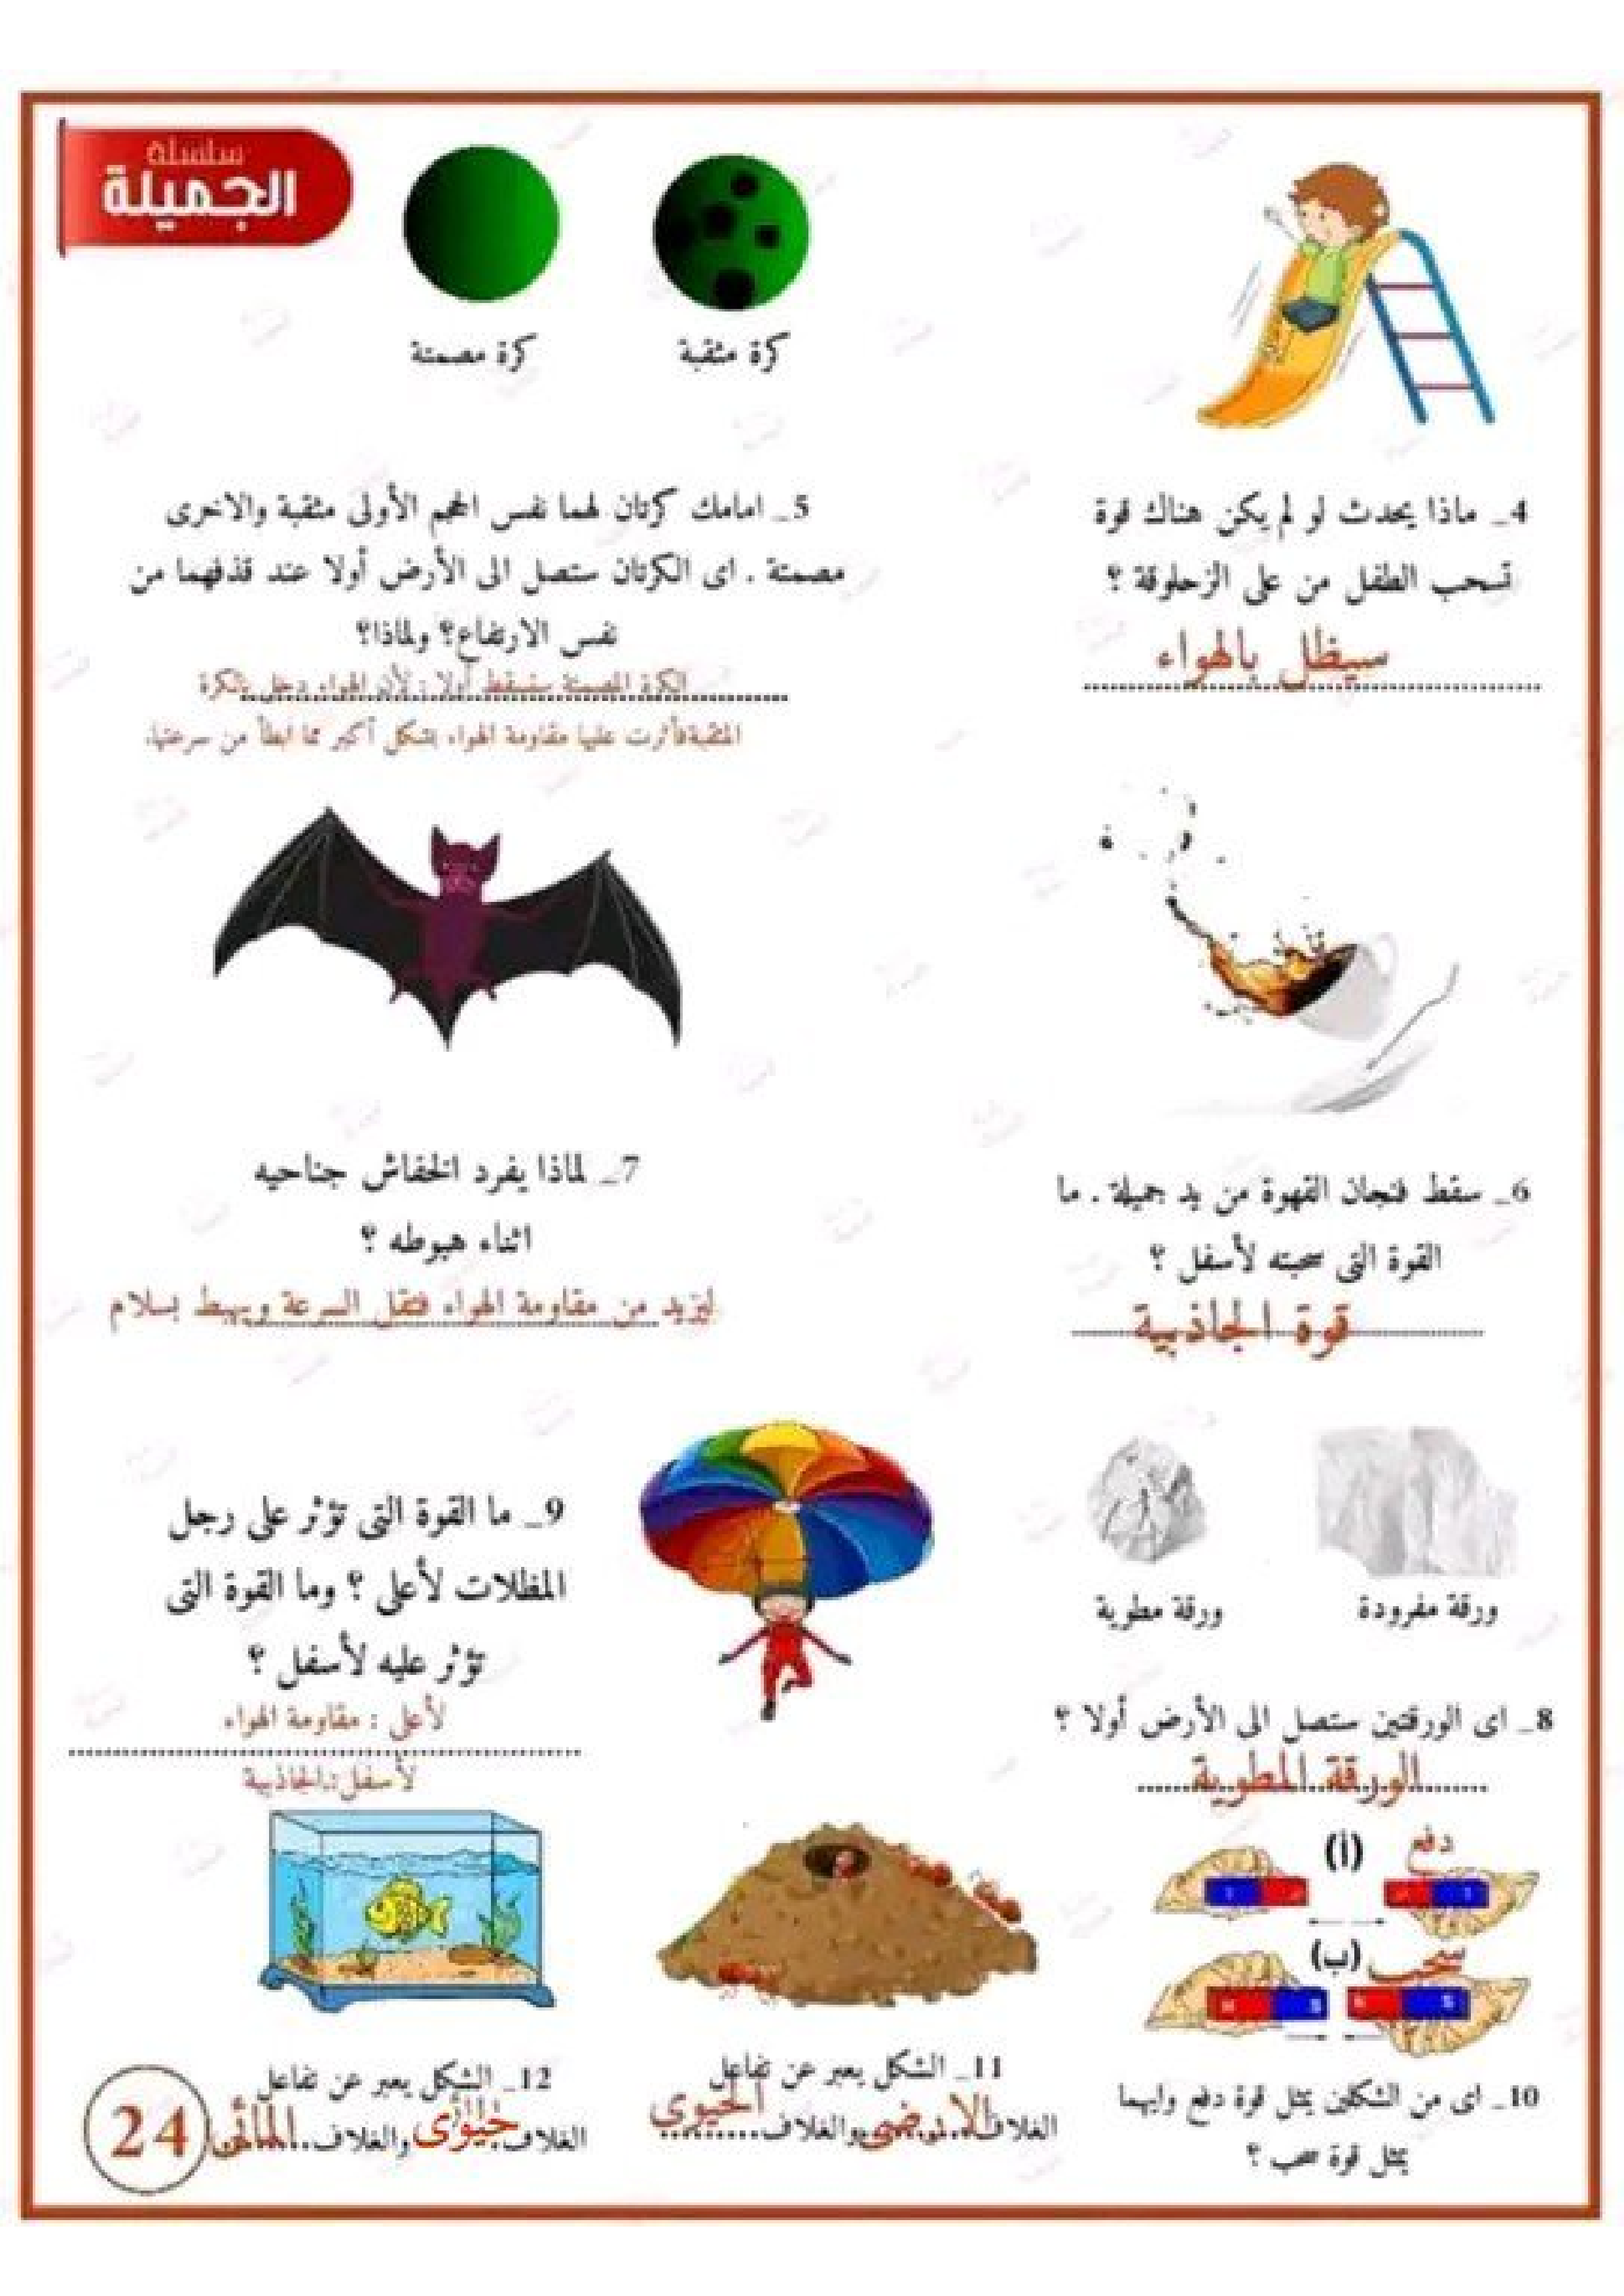 سلسلة
الجميلة
كرة مثقبة
كرة مصمتة
4_ ماذا يحدث لو لم يكن هناك قوة
تسحب الطفل من على الزحلوقة ؟
سيظل بالهواء
5_ امامك كرتان لهما نفس الحجم الأولى مثقبة والاخرى
مصمتة . اى الكرتان ستصل الى الأرض أولا عند قذفهما من
نفس الارتفاع؟ ولماذا؟
الكرة المصمتة ستسقط أولا : لأن الهواء دخل بالكرة
المثقبة فأثرت عليها مقاومة الهواء بشكل أكبر مما ابطأ من سرعتها.
6_ سقط فنجان القهوة من يد جميلة . ما
القوة التى سحبته لأسفل ؟
قوة الجاذبية
7_ لماذا يفرد الخفاش جناحيه
اثناء هبوطه ؟
ليزيد من مقاومة الهواء فتقل السرعة ويهبط بسلام
ورقة مفرودة
ورقة مطوية
8_ اى الورقتين ستصل الى الأرض أولا ؟
الورقة المطوية
9_ ما القوة التى تؤثر على رجل
المظلات لأعلى ؟ وما القوة التى
تؤثر عليه لأسفل ؟
لأعلى : مقاومة الهواء
لأسفل : الجاذبية
(أ) دفع
(ب) سحب
S S
10_ اى من الشكلين يمثل قوة دفع وايهما
يمثل قوة سحب ؟
11_ الشكل يعبر عن تفاعل
الغلاف الارضى والغلاف الحيوي
12_ الشكل يعبر عن تفاعل
الغلاف حيوى والغلاف المائى
24